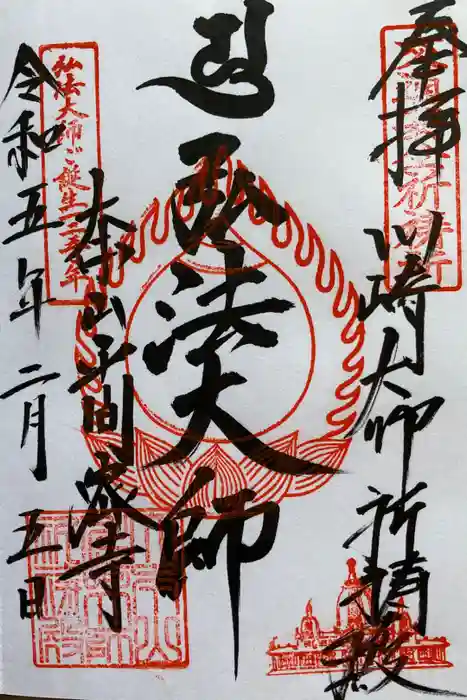 奉拝
川崎大師祈祷殿
弘法大師
大本山平間寺
弘法大師ご誕生一二五〇年
令和五年二月五日